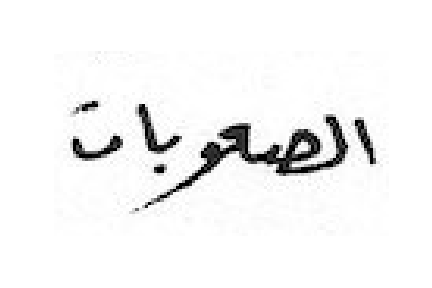 الصعوبات